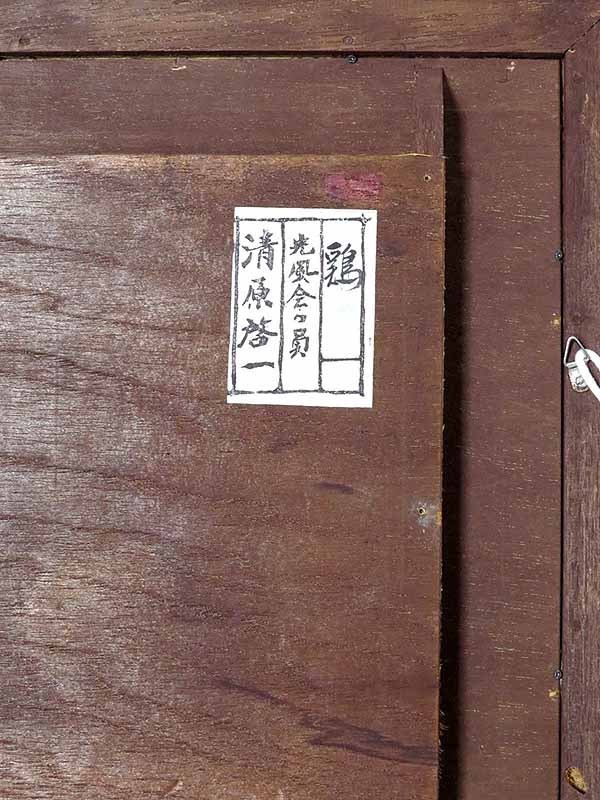 鶏
光風会々員
清原啓一